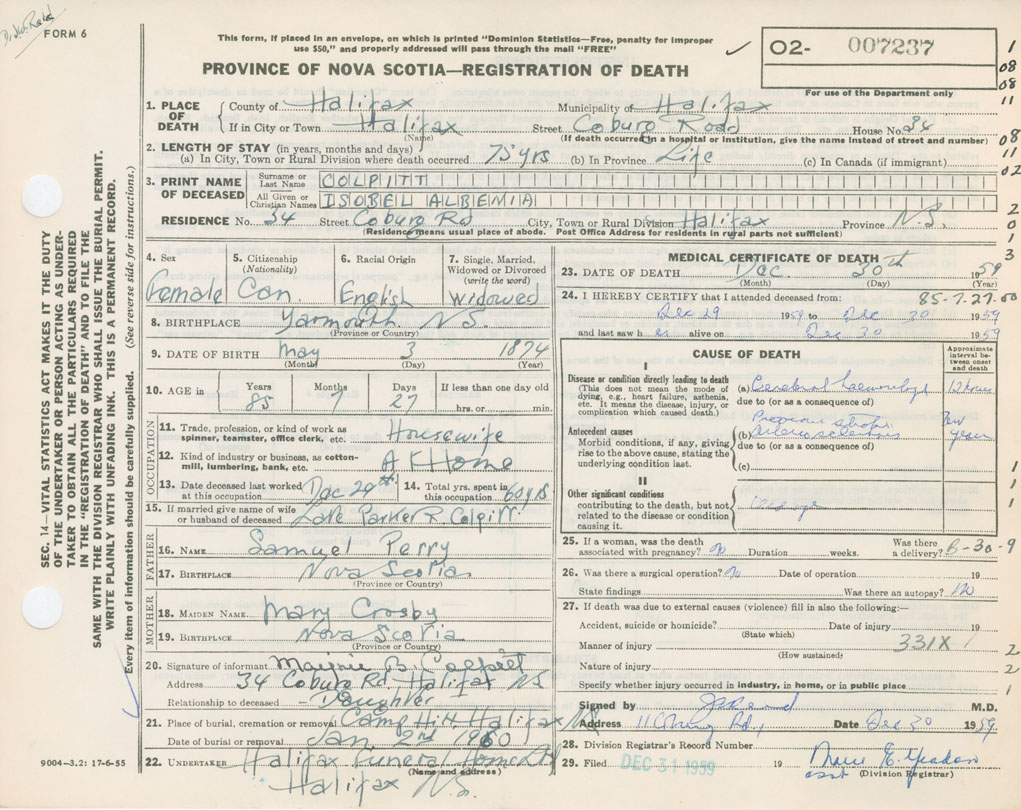 Dr. J.W. Reid
FORM 6
This form, if placed in an envelope, on which is printed "Dominion Statistics—Free, penalty for improper
use $50," and properly addressed will pass through the mail "FREE"
PROVINCE OF NOVA SCOTIA—REGISTRATION OF DEATH
O2- 007237
For use of the Department only
1
08
08
11
08
11
02
2
0
1
3
1. PLACE OF DEATH
County of Halifax Municipality of Halifax
If in City or Town Halifax Street Coburg Road House No. 34
(Name) (If death occurred in a hospital or institution, give the name instead of street and number)
2. LENGTH OF STAY (in years, months and days)
(a) In City, Town or Rural Division where death occurred 75 yrs (b) In Province Life (c) In Canada (if immigrant)
3. PRINT NAME OF DECEASED
Surname or Last Name COLPITT
All Given or Christian Names ISOBEL ALBEMIA
RESIDENCE No. 34 Street Coburg Rd City, Town or Rural Division Halifax Province N.S.
(Residence means usual place of abode. Post Office Address for residents in rural parts not sufficient)
4. Sex Female
5. Citizenship (Nationality) Can.
6. Racial Origin English
7. Single, Married, Widowed or Divorced (write the word) Widowed
8. BIRTHPLACE Yarmouth N.S.
(Province or Country)
9. DATE OF BIRTH May 3 1874
(Month) (Day) (Year)
10. AGE in Years 85 Months 7 Days 27 If less than one day old hrs. or min.
OCCUPATION
11. Trade, profession, or kind of work as spinner, teamster, office clerk, etc. Housewife
12. Kind of industry or business, as cotton-mill, lumbering, bank, etc. At Home
13. Date deceased last worked at this occupation Dec 29th
14. Total yrs. spent in this occupation 60 yrs
15. If married give name of wife or husband of deceased Late Parker R. Colpitt
FATHER
16. NAME Samuel Perry
17. BIRTHPLACE Nova Scotia
(Province or Country)
MOTHER
18. MAIDEN NAME Mary Crosby
19. BIRTHPLACE Nova Scotia
(Province or Country)
20. Signature of informant Marjorie B. Colpitt
Address 34 Coburg Rd. Halifax NS
Relationship to deceased - Daughter
21. Place of burial, cremation or removal Camp Hill Halifax NS
Date of burial or removal Jan 2nd 1960
22. UNDERTAKER Halifax Funeral Home Ltd
(Name and address)
Halifax N.S.
9004-3.2: 17-6-55
MEDICAL CERTIFICATE OF DEATH
23. DATE OF DEATH Dec 30th 1959
(Month) (Day) (Year)
24. I HEREBY CERTIFY that I attended deceased from: 85-7-27-00
Dec 29 1959 to Dec 30 1959
and last saw her alive on Dec 30 1959
CAUSE OF DEATH
Approximate interval between onset and death
I
Disease or condition directly leading to death
(This does not mean the mode of dying, e.g., heart failure, asthenia, etc. It means the disease, injury, or complication which caused death.)
(a) Cerebral haemorrhage 12 hours
due to (or as a consequence of)
Antecedent causes
Morbid conditions, if any, giving rise to the above cause, stating the underlying condition last.
Previous strokes
(b) Arteriosclerosis Few years
due to (or as a consequence of)
(c)
II
Other significant conditions
contributing to the death, but not related to the disease or condition causing it.
Old age
1
1
1
25. If a woman, was the death associated with pregnancy? No Duration weeks. Was there a delivery? B-30-9
26. Was there a surgical operation? No Date of operation 19
State findings Was there an autopsy? No
27. If death was due to external causes (violence) fill in also the following:—
Accident, suicide or homicide? Date of injury 19
(State which)
Manner of injury 331X
(How sustained)
2
Nature of injury
2
Specify whether injury occurred in industry, in home, or in public place
1
Signed by M.D.
Address Date Dec 30 1959
28. Division Registrar's Record Number
29. Filed DEC 31 1959 19 Marie E. Yeadon
asst (Division Registrar)
SEC. 14—VITAL STATISTICS ACT MAKES IT THE DUTY
OF THE UNDERTAKER OR PERSON ACTING AS UNDER-
TAKER TO OBTAIN ALL THE PARTICULARS REQUIRED
IN THE "REGISTRATION OF DEATH" AND TO FILE THE
SAME WITH THE DIVISION REGISTRAR WHO SHALL ISSUE THE BURIAL PERMIT.
WRITE PLAINLY WITH UNFADING INK. THIS IS A PERMANENT RECORD.
Every item of information should be carefully supplied. (See reverse side for instructions.)